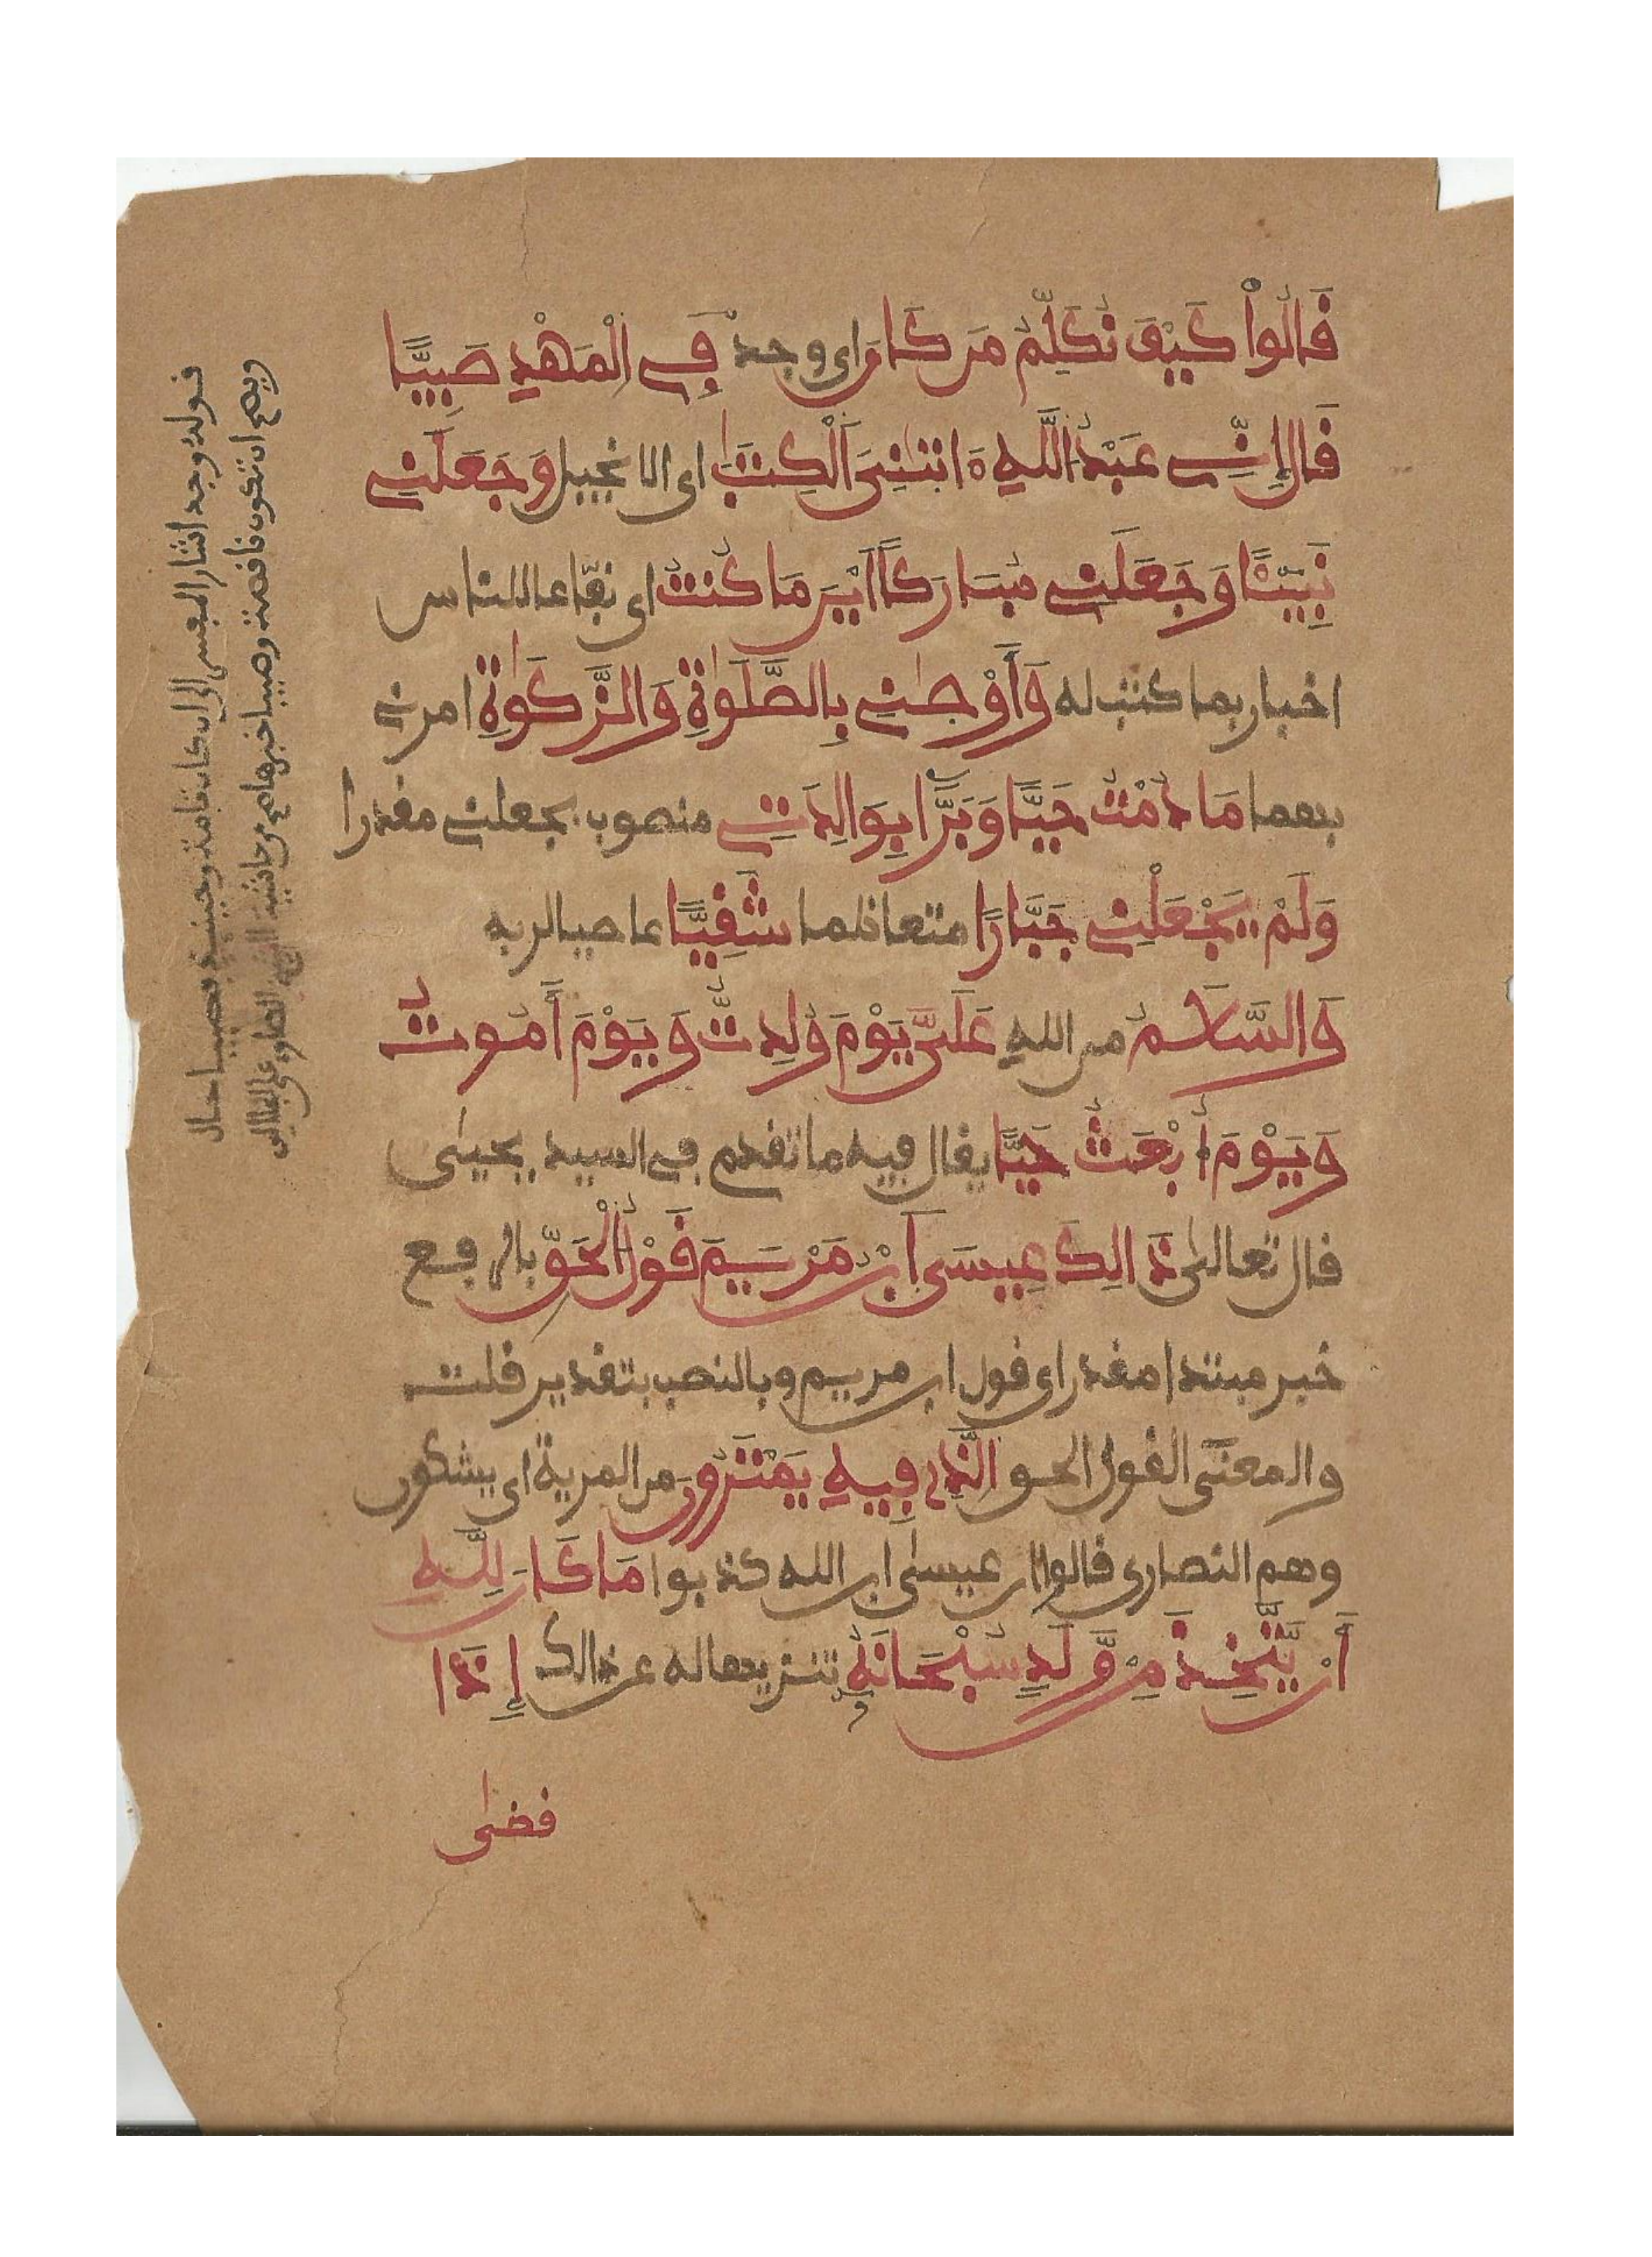 قَالُواْ كَيْفَ نُكَلِّمُ مَن كَانَ اى وجد فِى اِلْمَهْدِ صَبِيًّا
قَالَ إِنِّى عَبْدُ اللَّهِ ءَاتٰنِىَ اَلْكِتَٰبَ اى الانجيل وَجَعَلَنِى
نَبِيًّا وَجَعَلَنِى مُبَارَكاً اَيْنَ مَا كُنتُ اى نفّاعا للناس
اخبار بما كتب له وَأَوْصَٰنِى بِالصَّلَوٰةِ وَالزَّكَوٰةِ امرنى
بهما مَا دُمْتُ حَيًّا وَبَرًّا بِوَالِدَتِى منصوب بجعلنى مقدرا
وَلَمْ يَجْعَلْنِى جَبَّارًا متعاظما شَقِيًّا عاصيا لربه
وَالسَّلَامُ من اللهِ عَلَىَّ يَوْمَ وُلِدتُّ وَيَوْمَ أَمُوتُ
وَيَوْمَ أُبْعَثُ حَيًّا يقال فيه ما تقدم فى السيد يحيىٰ
قال تعالىٰ ذَالِكَ عِيسَى اَبْنُ مَرْيَمَ قَوْلُ اَلْحَقِّ بالرفع
خبر مبتدا مقدر اى قول ابن مريم وبالنصب بتقدير قلت
والمعنى القول الحق الَّذِى فِيهِ يَمْتَرُونَ من المرية اى يشكون
وهم النصارى قالوا ان عيسىٰ ابن الله كذبوا مَا كَانَ لِلَّهِ
أَنْ يَّتَّخِذَ مِنْ وَّلَدٍ سُبْحَانَهُ تنزيها له عن ذالك إِذَا
قضىٰ
قوله وجد اشار المفسر الى ان كان تامة وحينئذ فصبيا حال
ويصح ان تكون ناقصة وصبيا خبرها اهـ من حاشية الصاوى على الجلالين